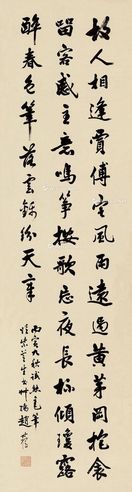 故人相逢賈傅宅風雨遠過黃茅岡抱衾
留客感主意鳴箏按歌忘夜長杯傾瓊露
醉春色筆落雲錦紛天章
丙寅九秋試毫筆
趙